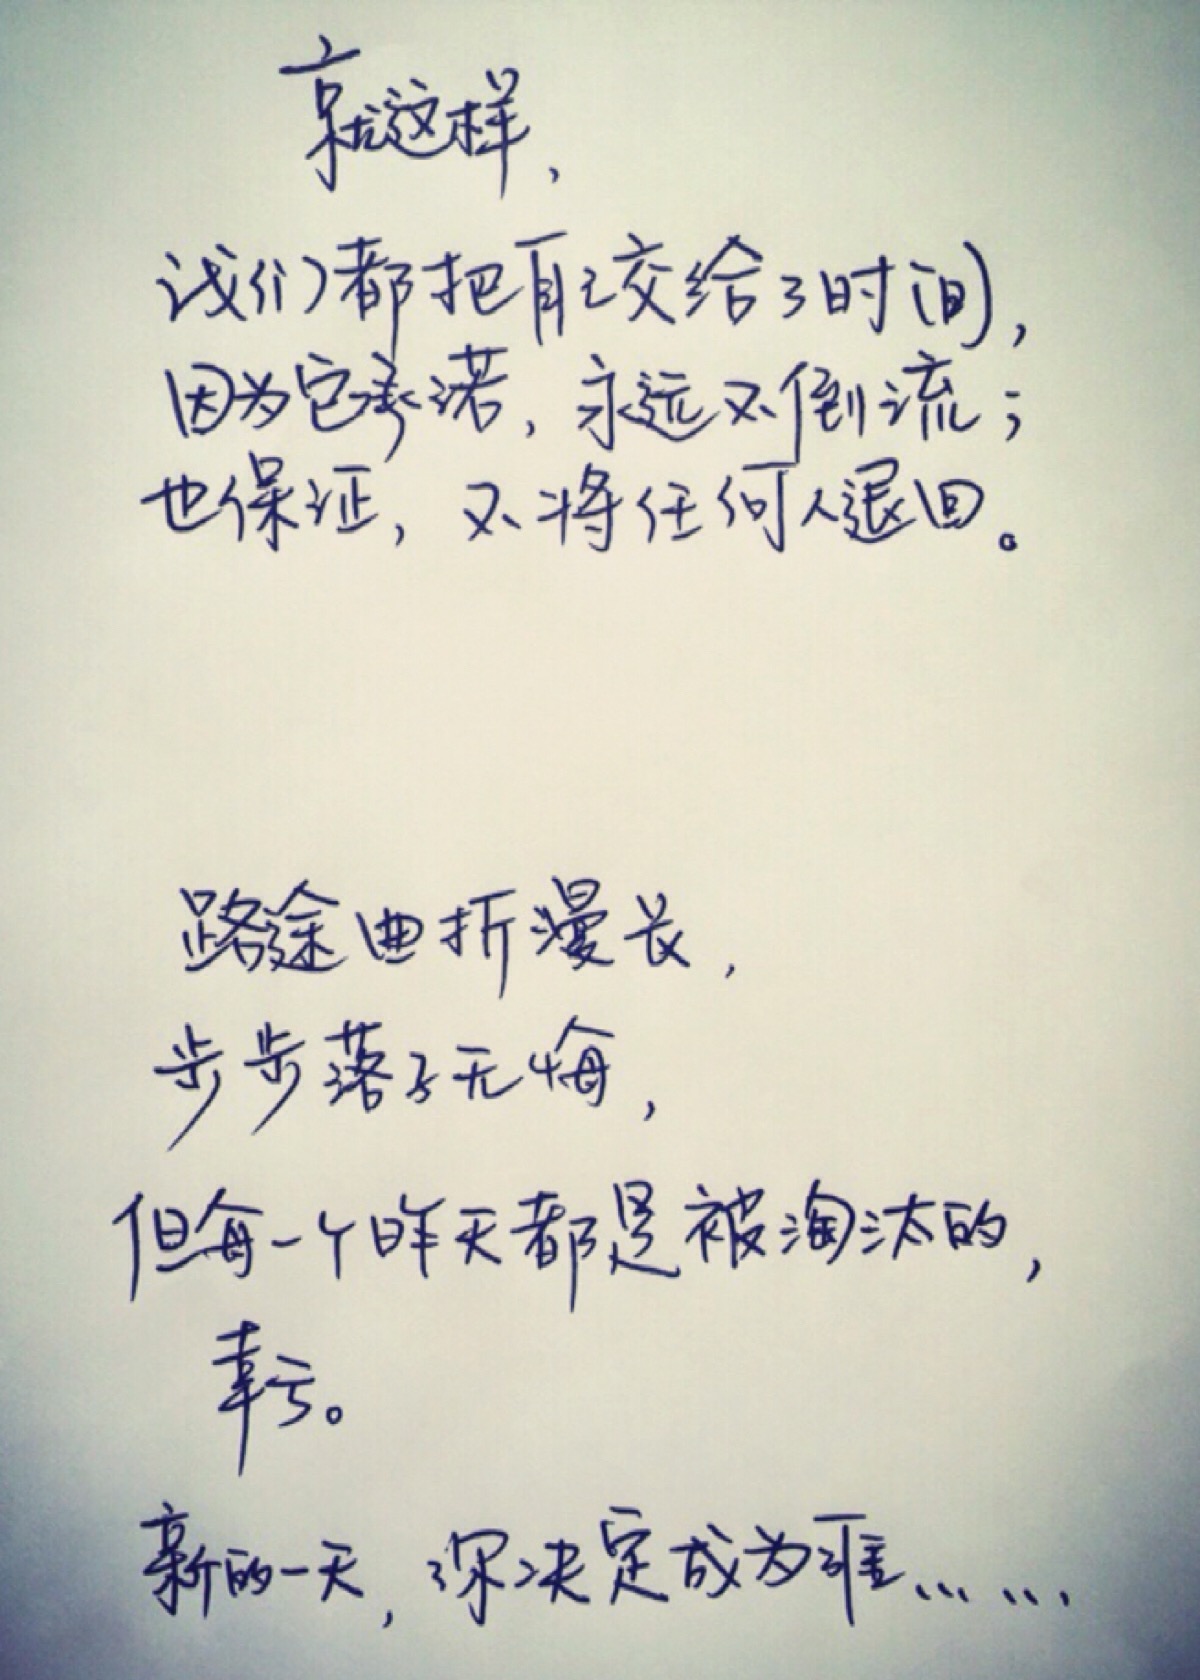 就这样，
我们都把自己交给了时间，
因为它承诺，永远不倒流；
也保证，不将任何人退回。
路途曲折漫长，
步步落子无悔，
但每一个昨天都是被淘汰的，
幸亏。
新的一天，你决定成为谁……